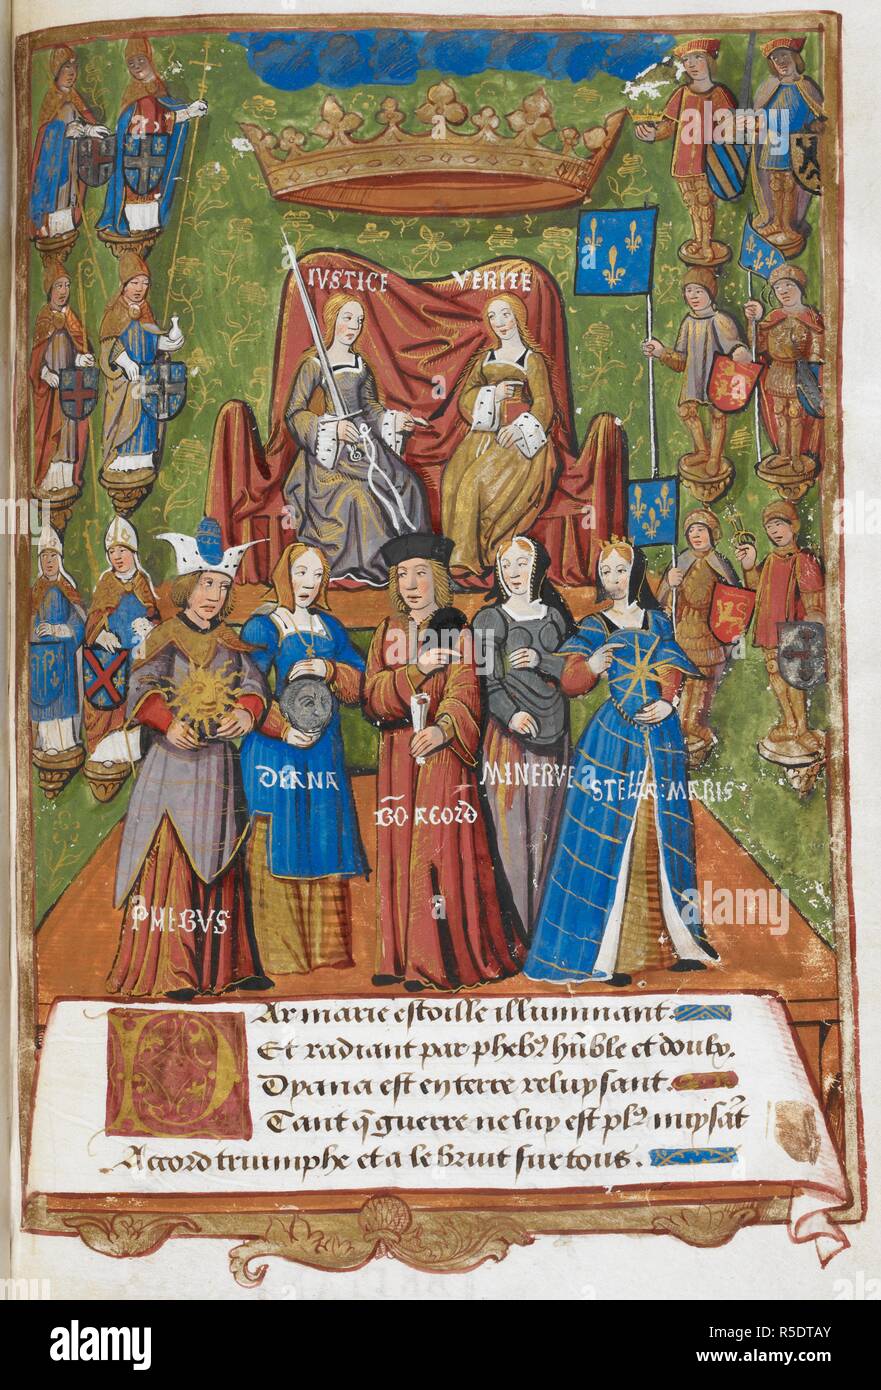 IVSTICE VERITE
DEANA
MINERVE
STELLA : MARIS
BŌ ACORD
PHEBVS
Par marie estoille illuminant.
Et radiant par phebꝰ hūble et doulx.
Dyana est en terre reluysant.
Tant q̄ guerre ne luy est plꝰ nuysāt
Accord triumphe et a le bruit sur tous.
alamy
Image ID: R5DTAY
www.alamy.com